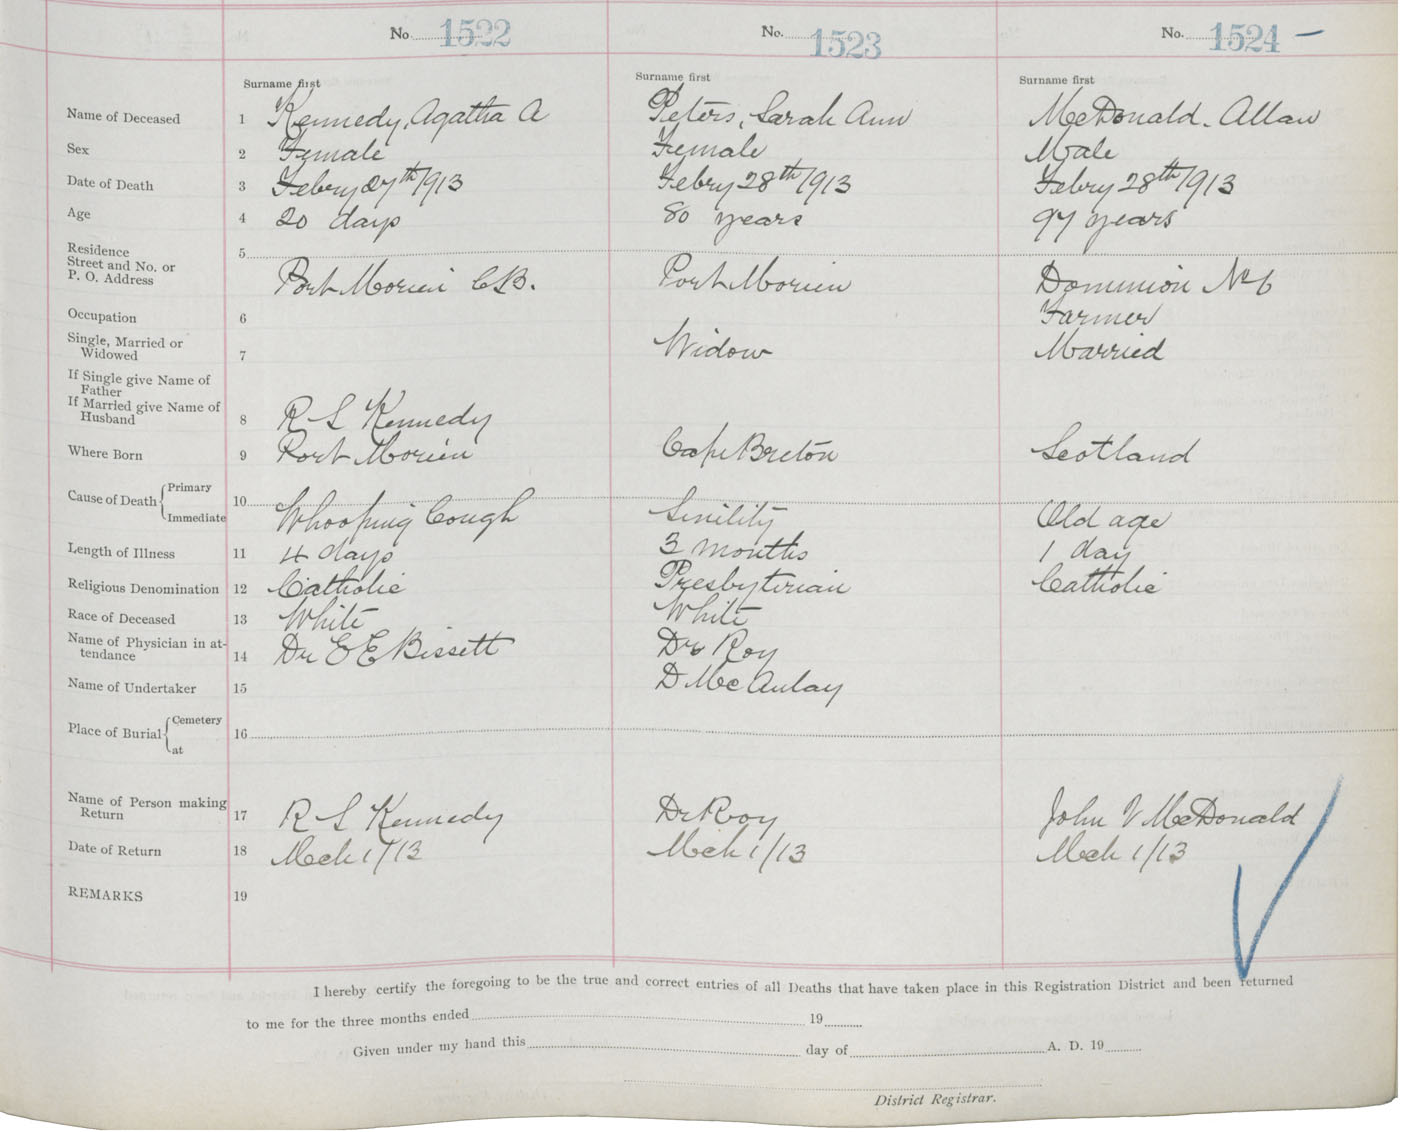 No. 1522 No. 1523 No. 1524 –
Surname first Surname first Surname first
Name of Deceased 1 Kennedy, Agatha A Peters, Sarah Ann McDonald. Allan
Sex 2 Female Female Male
Date of Death 3 Febry 27th/913 Febry 28th/913 Febry 28th/913
Age 4 20 days 80 years 97 years
Residence 5
Street and No. or
P. O. Address Port Morien C.B. Port Morien Dominion No 6
Occupation 6 Farmer
Single, Married or
Widowed 7 Widow Married
If Single give Name of
Father
If Married give Name of
Husband 8 R L Kennedy
Where Born 9 Port Morien Cape Breton Scotland
Cause of Death { Primary
10
Immediate Whooping Cough Sinility Old age
Length of Illness 11 4 days 3 months 1 day
Religious Denomination 12 Catholic Presbyterian Catholic
Race of Deceased 13 White White
Name of Physician in at-
tendance 14 Dr E E Bissett Dr Roy
Name of Undertaker 15 D McAulay
Place of Burial { Cemetery
16
at
Name of Person making
Return 17 R L Kennedy Dr Roy John V McDonald
Date of Return 18 Mch 1/13 Mch 1/13 Mch 1/13
REMARKS 19
I hereby certify the foregoing to be the true and correct entries of all Deaths that have taken place in this Registration District and been returned
to me for the three months ended 19
Given under my hand this day of A. D. 19
District Registrar.